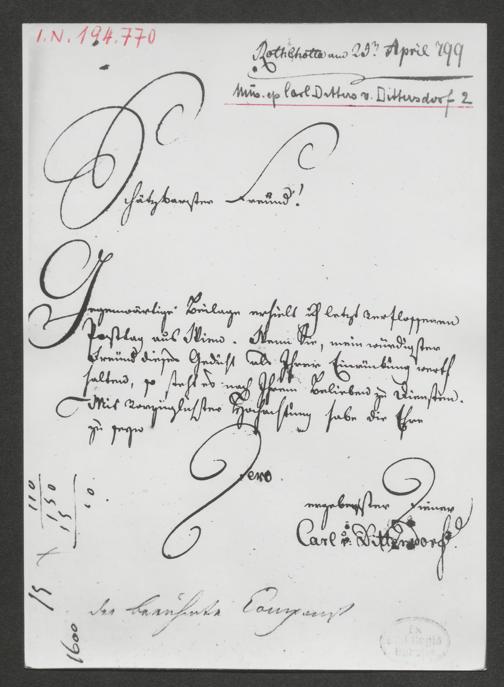 I.N. 194.770
Rothlhotta am 29ten April 799
Mus. ep Carl Ditters v. Dittersdorf 2
Schätzbarster Freund!
Gegenwärtige Beilage erhielt ich letzt verflossenen
Posttag aus Wien. Wenn Sie, mein würdigster
Freund dieses Gedicht als Ihrer Einrückung werth
halten, so steht es nach Ihrem Belieben zu Diensten.
Mit vorzüglichster Hochachtung habe die Ehre
zu seyn
Dero
ergebenster Diener
Carl v. Dittersdorf
der berühmte Componist
110
150
15
10.
15
1600